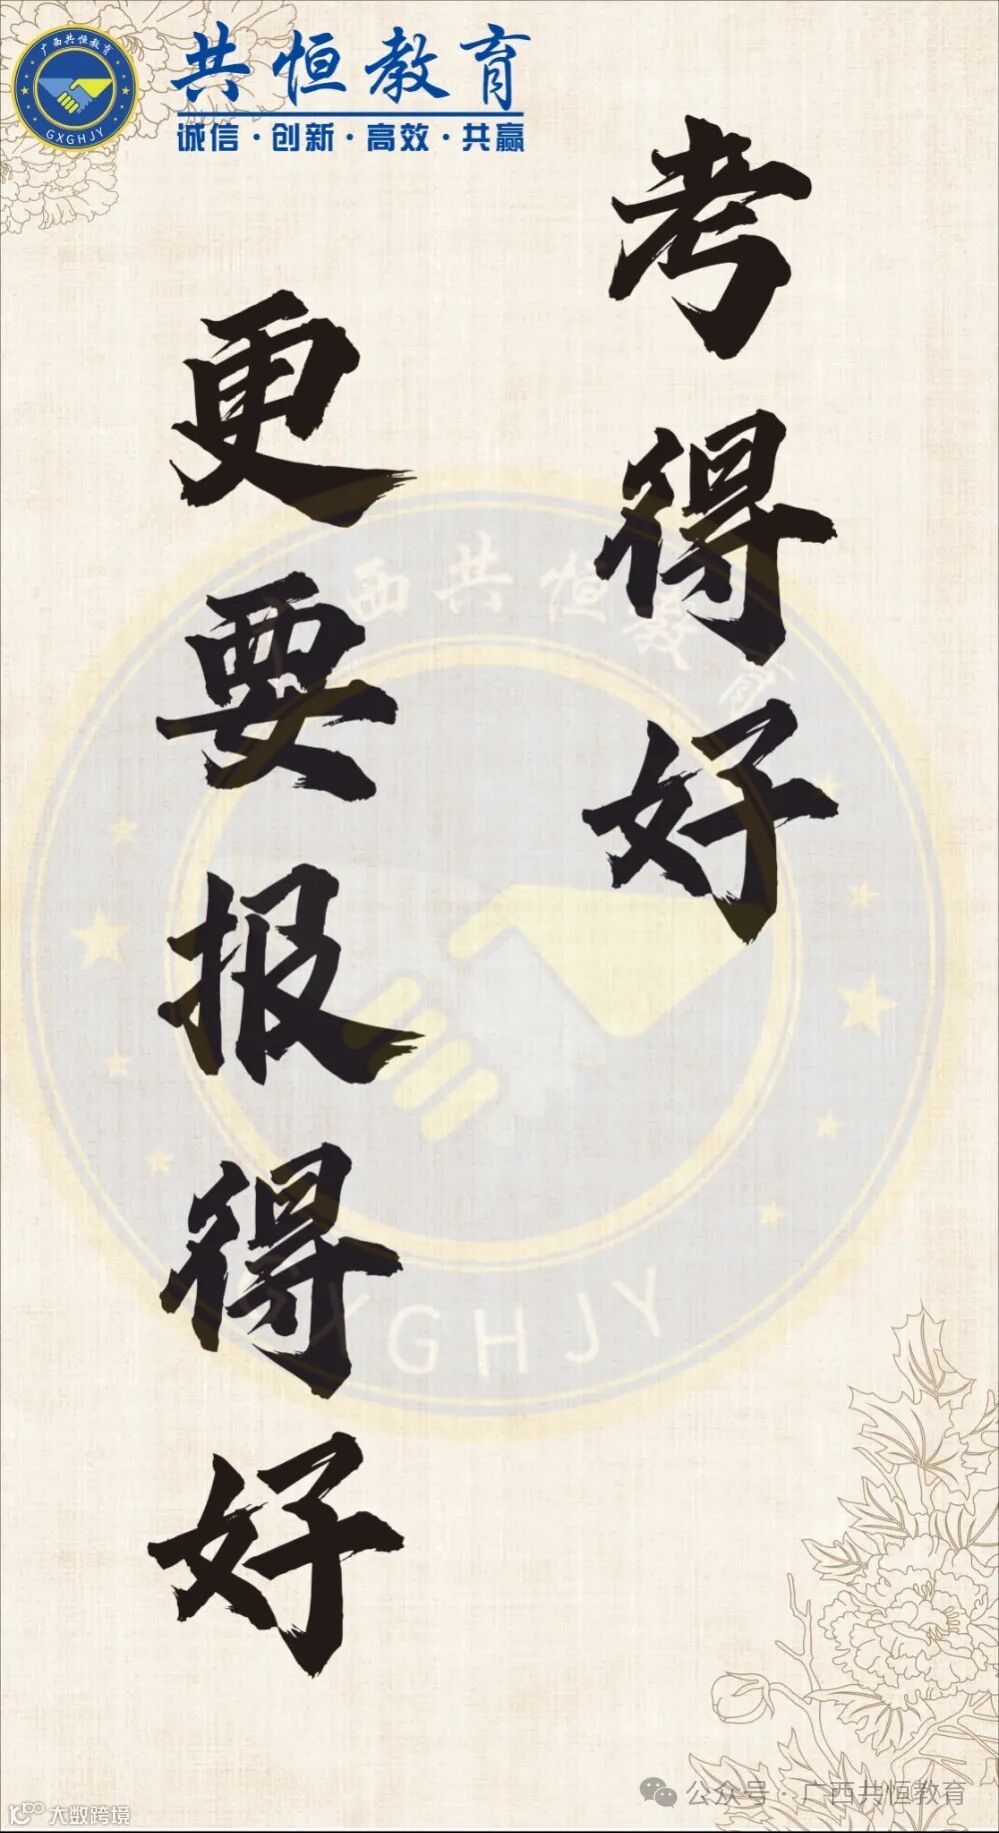 广西共恒教育
GXGHJY
共恒教育
诚信·创新·高效·共赢
考得好
更要报得好
西共恒教育
GXGHJY
公众号·广西共恒教育
大数跨境